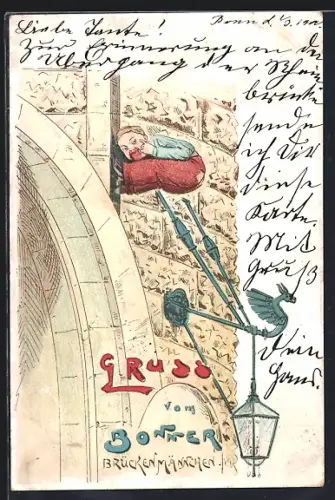 Liebe Tante! Bonn d. 1/3. 1900
Zur Erinnerung an den
Übergang der Rhein
brücke
sende
ich Dir
diese
Karte.
Mit
Gruß
Dein
Hans.
GRUSS
VOM
BONNER
BRÜCKENMÄNNCHEN